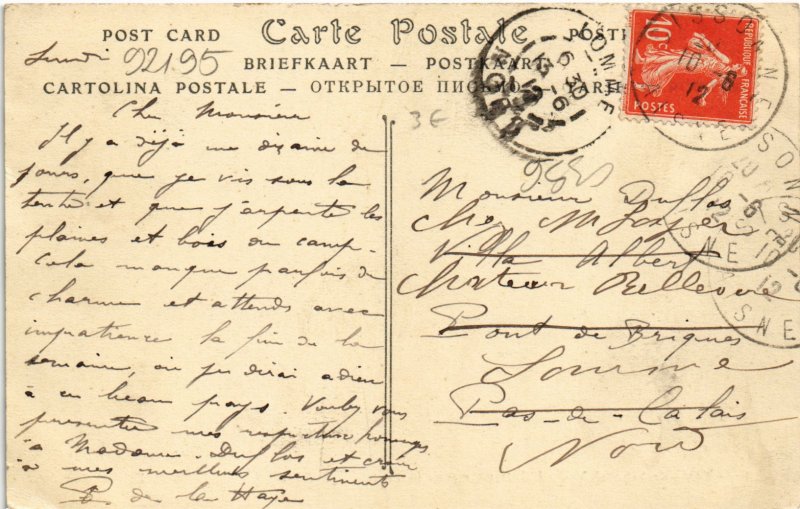 POST CARD Carte Postale
BRIEFKAART — POSTKAART
CARTOLINA POSTALE — ОТКРЫТОЕ ПИСЬМО
Lundi 92195
3E
Cher Monsieur
Il y a déjà une dizaine de
jours, que je vis sous la
tente et que j'arpente les
plaines et bois du camp.
Cela manque parfois de
charme et attends avec
impatience la fin de la
semaine, où je dirai adieu
à ce beau pays. Voulez vous
présenter mes respectueux hommages
à Madame Duflos et croire
à mes meilleurs sentiments
P. de la Haye
Monsieur Duflos
Villa Albert
Chateau Bellevue
Pont de Briques
Somme
Pas-de-Calais
Nord
SISSONNE
AISNE
10 -6
12
SOMME
6 30
13 -6
12
REPUBLIQUE FRANÇAISE
10c
POSTES